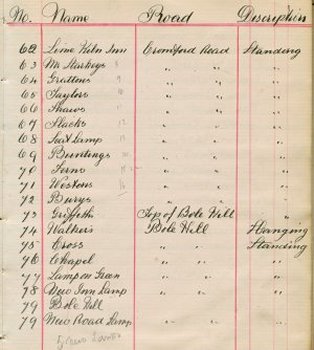 No. Name Road Discription
62 Lime Kiln Inn Cromford Road Standing
63 Mr Starkeys 8 " " "
64 Grattons 9 " " "
65 Taylors 10 " " "
66 Shaws 11 " " "
67 Slacks 12 " " "
68 Seat Lamp 13 " " "
69 Buntings " " "
70 Ferns " " "
71 Westons 16 " " "
72 Burys " " "
73 Griffiths Top of Bole Hill "
74 Walkers Bole Hill Hanging
75 Cross " " Standing
76 Chapel " " "
77 Lamp on Green " " "
78 New Inn Lamp " " "
79 Bole Hill
79 New Road Lamp " " "
5 New Lamps